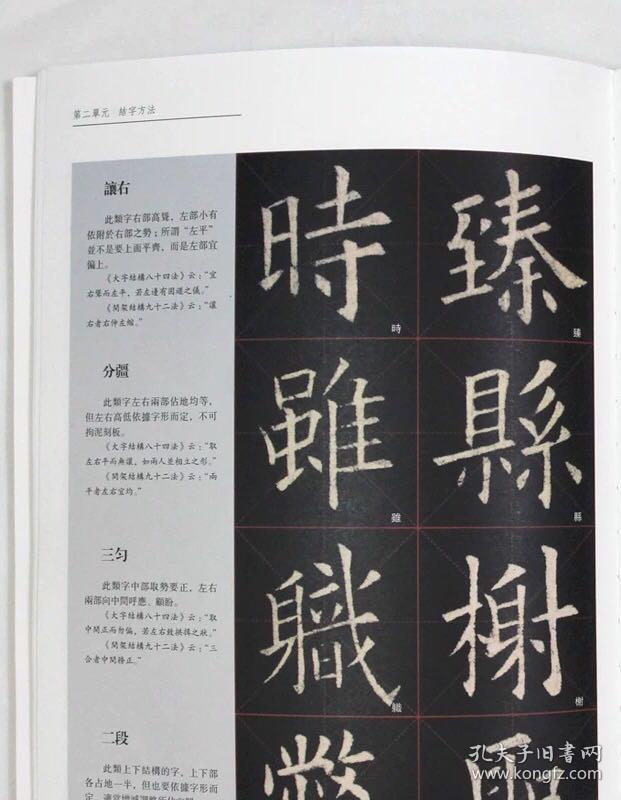 第二單元 結字方法
讓右
此類字右部高聳，左部小有
依附於右部之勢；所謂“左平”
並不是要上面平齊，而是左部宜
偏上。
《大字結構八十四法》云：“宜
右聳而左平，若左邊有固遜之儀。”
《間架結構九十二法》云：“讓
右者右伸左縮。”
時
臻
分疆
此類字左右兩部佔地均等，
但左右高低依據字形而定，不可
拘泥刻板。
《大字結構八十四法》云：“取
左右平而無讓，如兩人並相立之形。”
《間架結構九十二法》云：“兩
平者左右宜均。”
雖
縣
三勻
此類字中部取勢要正，左右
兩部向中間呼應、顧盼。
《大字結構八十四法》云：“取
中間正而勿偏，若左右致拱揖之狀。”
《間架結構九十二法》云：“三
合者中間務正。”
職
榭
二段
此類上下結構的字，上下部
各占地一半，但也要依據字形而
時
臻
雖
縣
軄
榭
孔夫子旧书网
www.kongfz.com